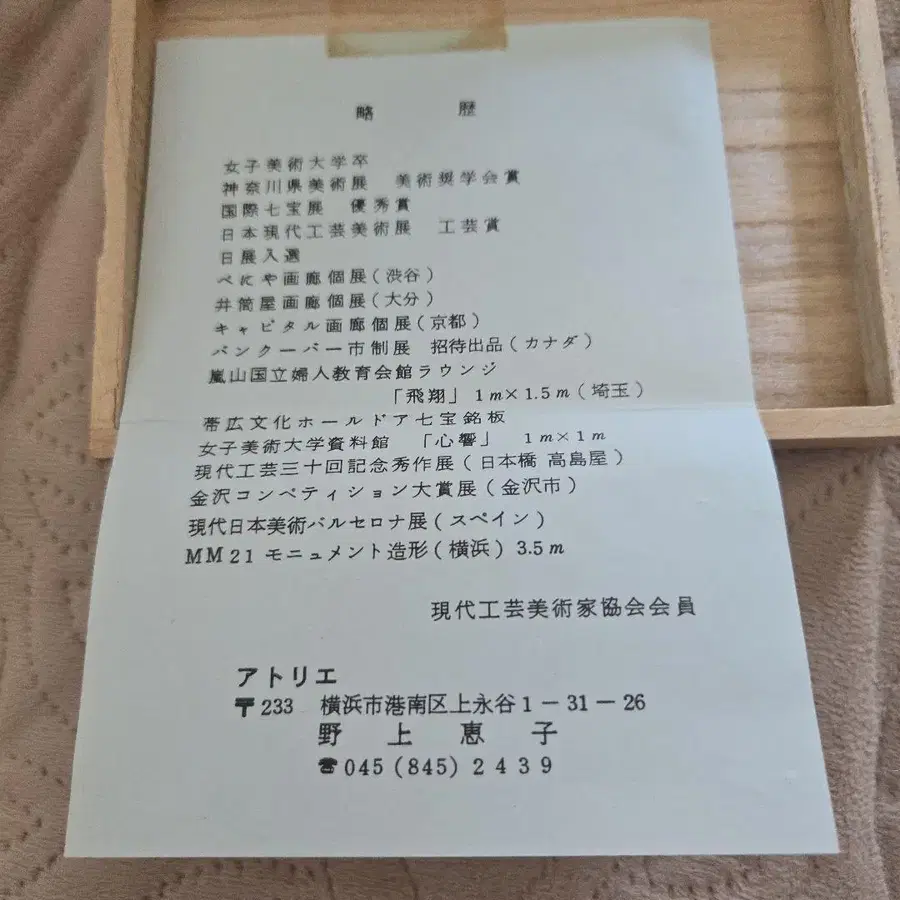 略 歴
女子美術大学卒
神奈川県美術展 美術奨学会賞
国際七宝展 優秀賞
日本現代工芸美術展 工芸賞
日展入選
べにや画廊個展(渋谷)
井筒屋画廊個展(大分)
キャピタル画廊個展(京都)
バンクーバー市制展 招待出品(カナダ)
嵐山国立婦人教育会館ラウンジ
「飛翔」1m×1.5m(埼玉)
帯広文化ホールドア七宝銘板
女子美術大学資料館 「心響」 1m×1m
現代工芸三十回記念秀作展(日本橋 高島屋)
金沢コンペティション大賞展(金沢市)
現代日本美術バルセロナ展(スペイン)
MM21モニュメント造形(横浜)3.5m
現代工芸美術家協会会員
アトリエ
〒233 横浜市港南区上永谷1-31-26
野上恵子
☎045(845)2439